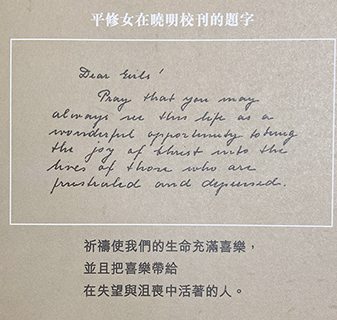 平修女在曉明校刊的題字
Dear Girls!
Pray that you may
always see this life as a
wonderful opportunity to bring
the joy of Christ into the
lives of those who are
frustrated and depressed.
祈禱使我們的生命充滿喜樂，
並且把喜樂帶給
在失望與沮喪中活著的人。